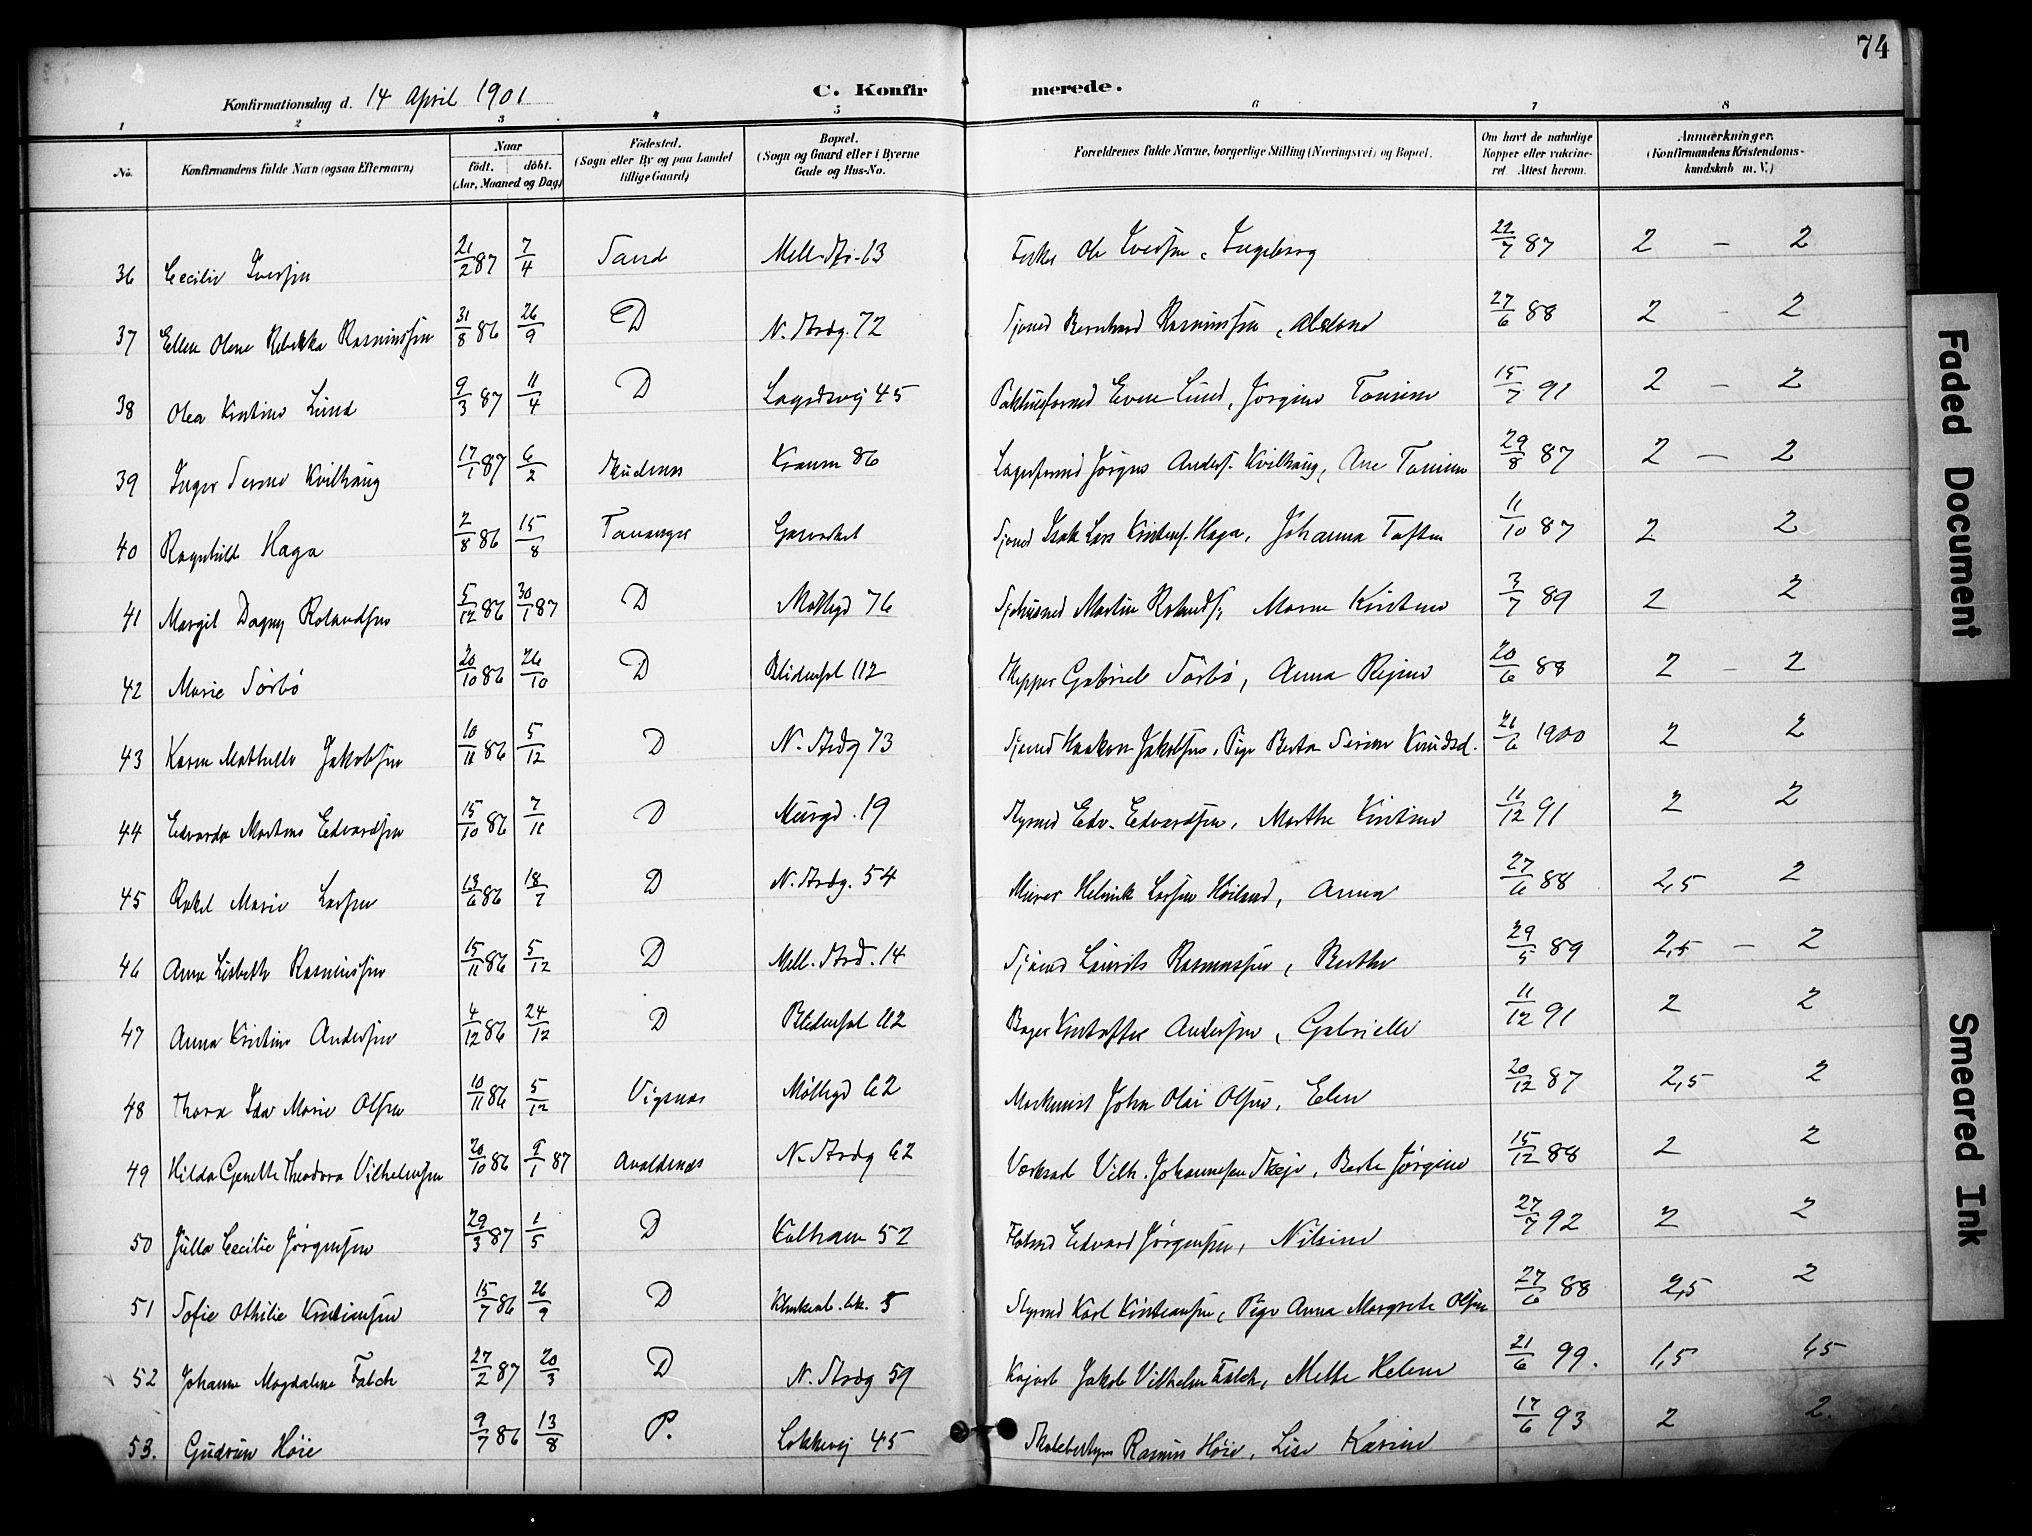 74
Konfirmationsdag d. 14 April 1901 C. Konfirmerede.
1 2 3 4 5 6 7 8
No. Konfirmandens fulde Navn (ogsaa Efternavn) Naar født. døbt. (Aar, Maaned og Dag) Fødested. (Sogn eller By og paa Landet tillige Gaard) Bopæl. (Sogn og Gaard eller i Byerne Gade og Hus-No. Forældrenes fulde Navne, borgerlige Stilling (Næringsvei) og Bopæl. Om havt de naturlige Kopper eller vakcineret Attest herom. Anmærkninger. (Konfirmandens Kristendomskundskab m. V.)
36 Cecilie Iversen 21/2 87 7/4 Sand Mell. Str. 13 Fisker Ole Iversen, Ingeborg 22/7 87 2 - 2
37 Ellen Olene Rebekka Rasmussen 31/8 86 26/9 D N. Strdg. 72 Sjømd Bernhard Rasmussen, 27/6 88 2 - 2
38 Olea Kristine Lund 9/3 87 11/4 D Lagdsvej 45 Even Lund, Jørgine Tomine 15/7 91 2 - 2
39 Inger Serine Kvilhaug 17/1 87 6/2 Skudenes 86 Lagerformd Jørgen Anders. Kvilhaug, Ane Tomine 29/8 87 2 - 2
40 Ragnhild Haga 2/8 86 15/8 Tananger Garverket Sjømd Isak Lars Kristens. Haga, Johanna 11/10 87 2 2
41 Margit Dagny Rolandsen 5/12 86 30/1 87 D Møllegd 76 Martin Rolands, Maren Kristine 3/7 89 2 2
42 Marie Sørbø 20/10 86 26/10 D Blidensol 112 Skipper Gabriel Sørbø, Anna Regine 20/6 88 2 - 2
43 Karen Mathilde Jakobsen 10/11 86 5/12 D N. Strdg 73 Sjømd Haakon Jakobsen, Pige Berta Serine Knudsd. 21/6 1900 2 2
44 Edvarda Martine Edvardsen 15/10 86 7/11 D Murgd. 19 Styrmd Edv. Edvardsen, Marthe Kristine 11/12 91 2 2
45 Rakel Marie Larsen 13/6 86 18/7 D N. Strdg. 54 Murer Helmik Larsen Høiland, Anna 27/6 88 2,5 2
46 Anna Lisbeth Rasmussen 15/11 86 5/12 D Mell. Strd. 14 Sjømd Laurits Rasmussen, Berthe 29/5 89 2,5 - 2
47 Anna Kristine Andersen 4/12 86 24/12 D Blidensol 112 Bager Kristoffer Andersen, Gabrielle 11/12 91 2 2
48 Thora Ida Marie Olsen 10/11 86 5/12 Vigsnæs Møllegd 62 Maskinist John Olai Olsen, Elen 20/12 87 2,5 2
49 Hilda Genette Theodora Vilhelmsen 20/10 86 9/1 87 Avaldsnæs N. Strdg 62 Vilh. Johannesen Skeje, Berte Jørgine 15/12 88 2 2
50 Julla Cecilie Jørgensen 29/3 87 1/5 D Kalham 52 Edvard Jørgensen, Nilsine 27/7 92 2 2
51 Sofie Othilie Kristiansen 15/7 86 26/9 D 5 Styrmd Karl Kristiansen, Pige Anna Margrete Olsen 27/6 88 2,5 2
52 Johanne Magdalene Falck 27/2 87 20/3 D N. Strdg 59 Jakob Vilhelm Falck, Mette Helene 21/6 99. 1,5 1,5
53. Gudrun Høie 9/7 86 13/8 P. Løkkevej 45 Skolebestyrer Rasmus Høie, Lise Karine 17/6 93 2 2.
Faded Document
Smeared Ink